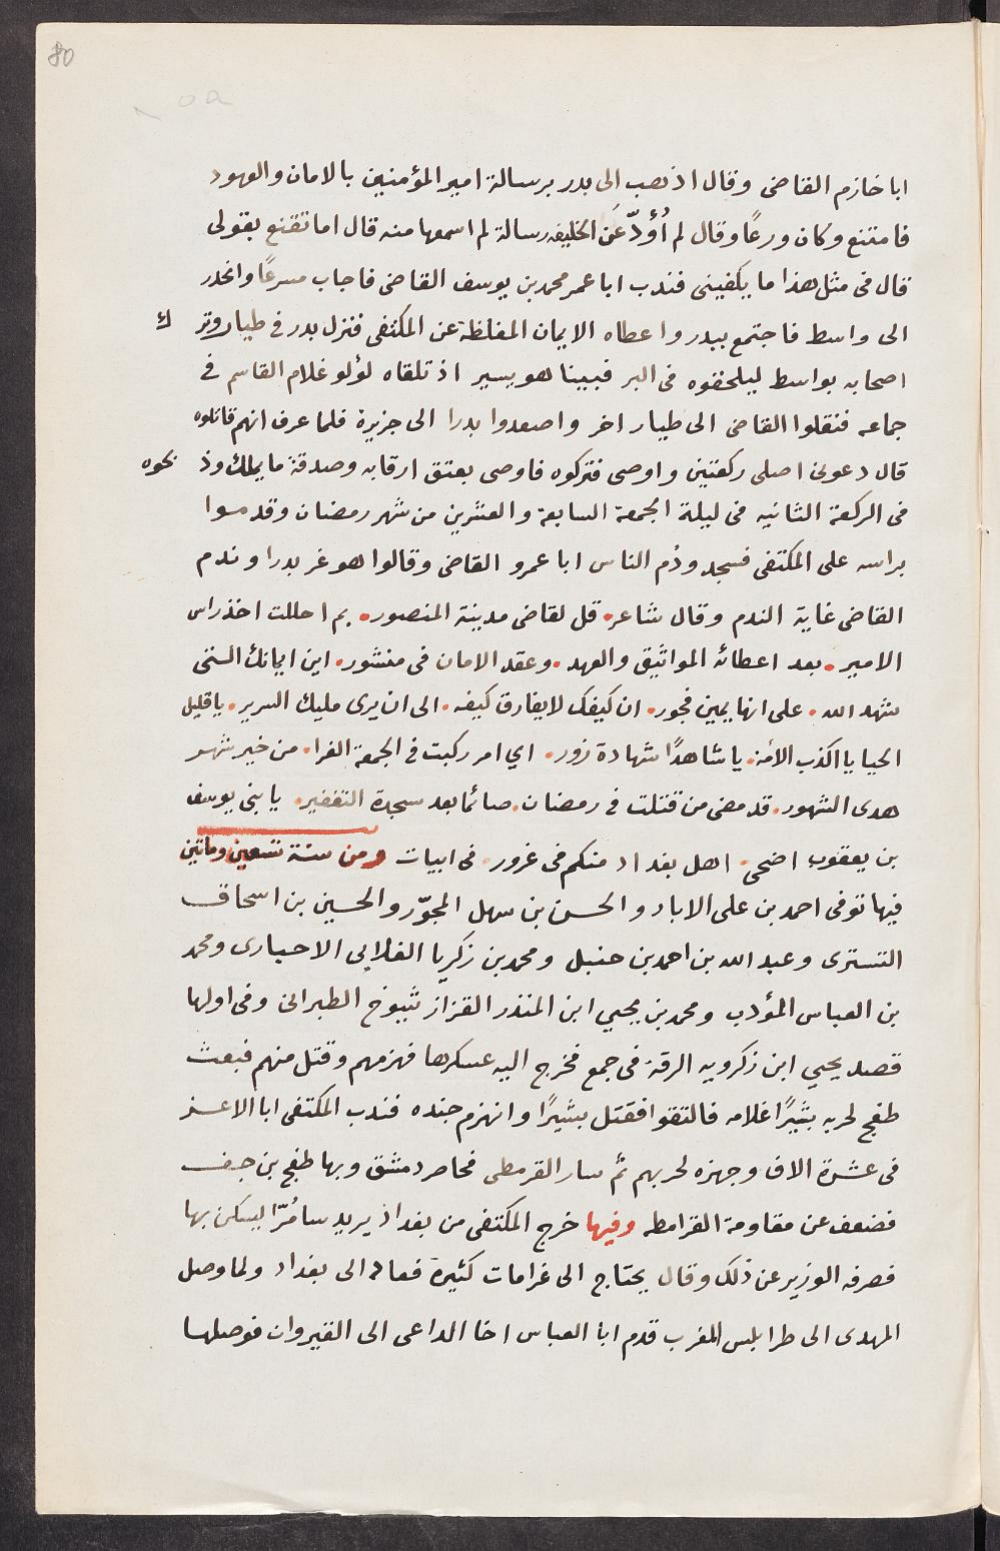 80
ابا خازم القاضى وقال اذهب الى بدر برسالة امير المؤمنين بالامان والعهود
فامتنع وكان ورعًا وقال لم أُؤدّ عَن الخليفه رسالة لم اسمعها منه قال اما تقنع بقولى
قال فى مثل هذا ما يكفينى فندب ابا عمر محمد بن يوسف القاضى فاجاب مسرعًا وانحدر
الى واسط فاجتمع ببدر واعطاه الايمان المغلظة عن المكتفى فنزل بدر فى طيار وتر ك
اصحابه بواسط ليلحقوه فى البر فبينا هو يسير اذ تلقاه لؤلو غلام القاسم فى
جماعه فنقلوا القاضى الى طيار اخر واصعدوا بدرا الى جزيرة فلما عرف انهم قاتلوه
قال دعونى اصلى ركعتين واوصى فتركوه فاوصى بعتق ارقابه وصدقة ما يملك وذ بحوه
فى الركعة الثانيه فى ليلة الجمعة السابعة والعشرين من شهر رمضان وقدموا
براسه على المكتفى فسجد وذم الناس ابا عمرو القاضى وقالوا هو غر بدرا وندم
القاضى غاية الندم وقال شاعر. قل لقاضى مدينة المنصور. بم احللت اخذ راس
الامير. بعد اعطائه المواثيق والعهد. وعقد الامان فى منشور. اين ايمانك التى
شهد الله. على انها يمين فجور. ان كيفك لا يفارق كيفه. الى ان يرى مليك السرير. يا قليل
الحيا يا اكذب الامّة. يا شاهدًا شهادة زور. اي امر ركبت فى الجمعة الغرا. من خير شهر
هدى الشهور. قد مضى من قتلت فى رمضان. صائما بعد سجدة التغفير. يا بنى يوسف
بن يعقوب اضحى. اهل بغداد منكم فى غرور. فى ابيات ومن سنة تسعين وماتين
فيها توفى احمد بن على الابار والحسن بن سهل المجوّر والحسين بن اسحاق
التسترى وعبد الله بن احمد بن حنبل ومحمد بن زكريا الغلابى الاحبارى ومحمد
بن العباس المؤدب ومحمد بن يحيي ابن المنذر القزاز شيوخ الطبرانى وفى اولها
قصد يحيي ابن زكرويه الرقة فى جمع فخرج اليه عسكرها فهزمهم وقتل منهم فبعث
طغج لحربه بشيرًا غلامه فالتقوا فقتل بشيرًا وانهزم جنده فندب المكتفى ابا الاعز
فى عشرة الاف وجهزه لحربهم ثم سار القرمطى فحاصر دمشق وبها طغج بن جف
فضعف عن مقاومة القرامطه وفيها خرج المكتفى من بغداد يريد سامُرّا ليسكن بها
فصرفه الوزير عن ذلك وقال يحتاج الى غرامات كثيرة فعاد الى بغداد ولما وصل
المهدى الى طرابلس المغرب قدم ابا العباس اخا الداعى الى القيروان فوصلها